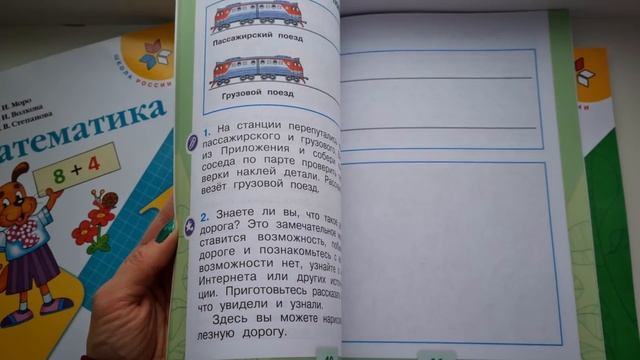 ШКОЛА РОССИИ
И. Моро
И. Волкова
В. Степанова
атематика
8 + 4
Пассажирский поезд
Грузовой поезд
1. На станции перепутали
пассажирского и грузового
из Приложения и собери
соседа по парте проверить
верки наклей детали.
везёт грузовой поезд.
2. Знаете ли вы, что такое
дорога? Это замечательное
ставится возможность,
дороге и познакомьтесь с
возможности нет, узнайте
Интернета или других
ции. Приготовьтесь
что увидели и узнали.
Здесь вы можете
лезную дорогу.